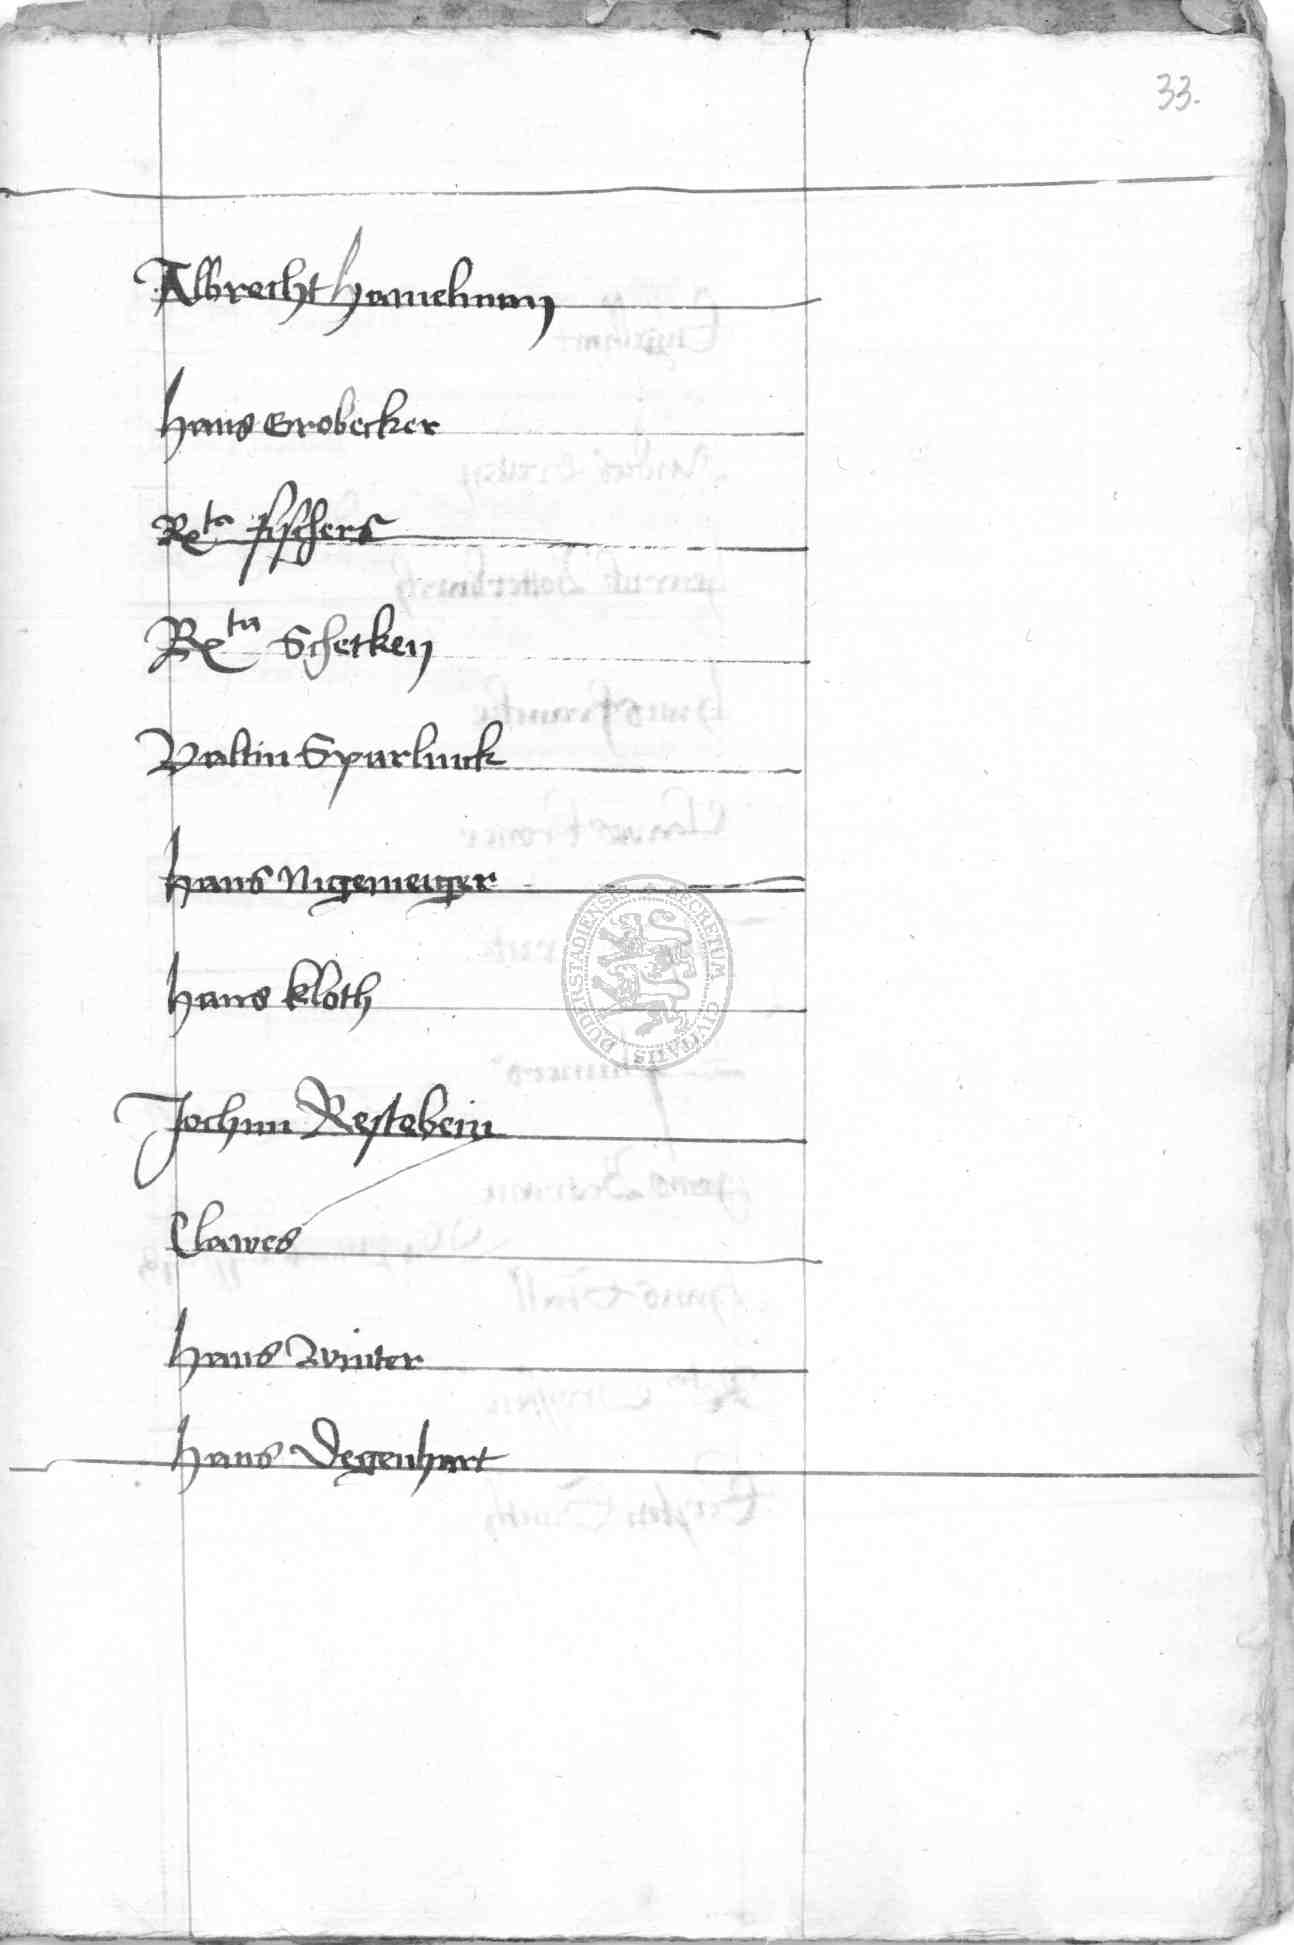 33.
Albrecht Hanelmann
Hans Grobecker
Rcta Fischers
Rcta Schetken
Valtin Sparlinck
Hans Nigemeiger
Hans Kloth
Jochim Restebein
Clawes
Hans Winter
Hans Degenhart
SECRETUM CIVITATIS DUDERSTADIENSIS